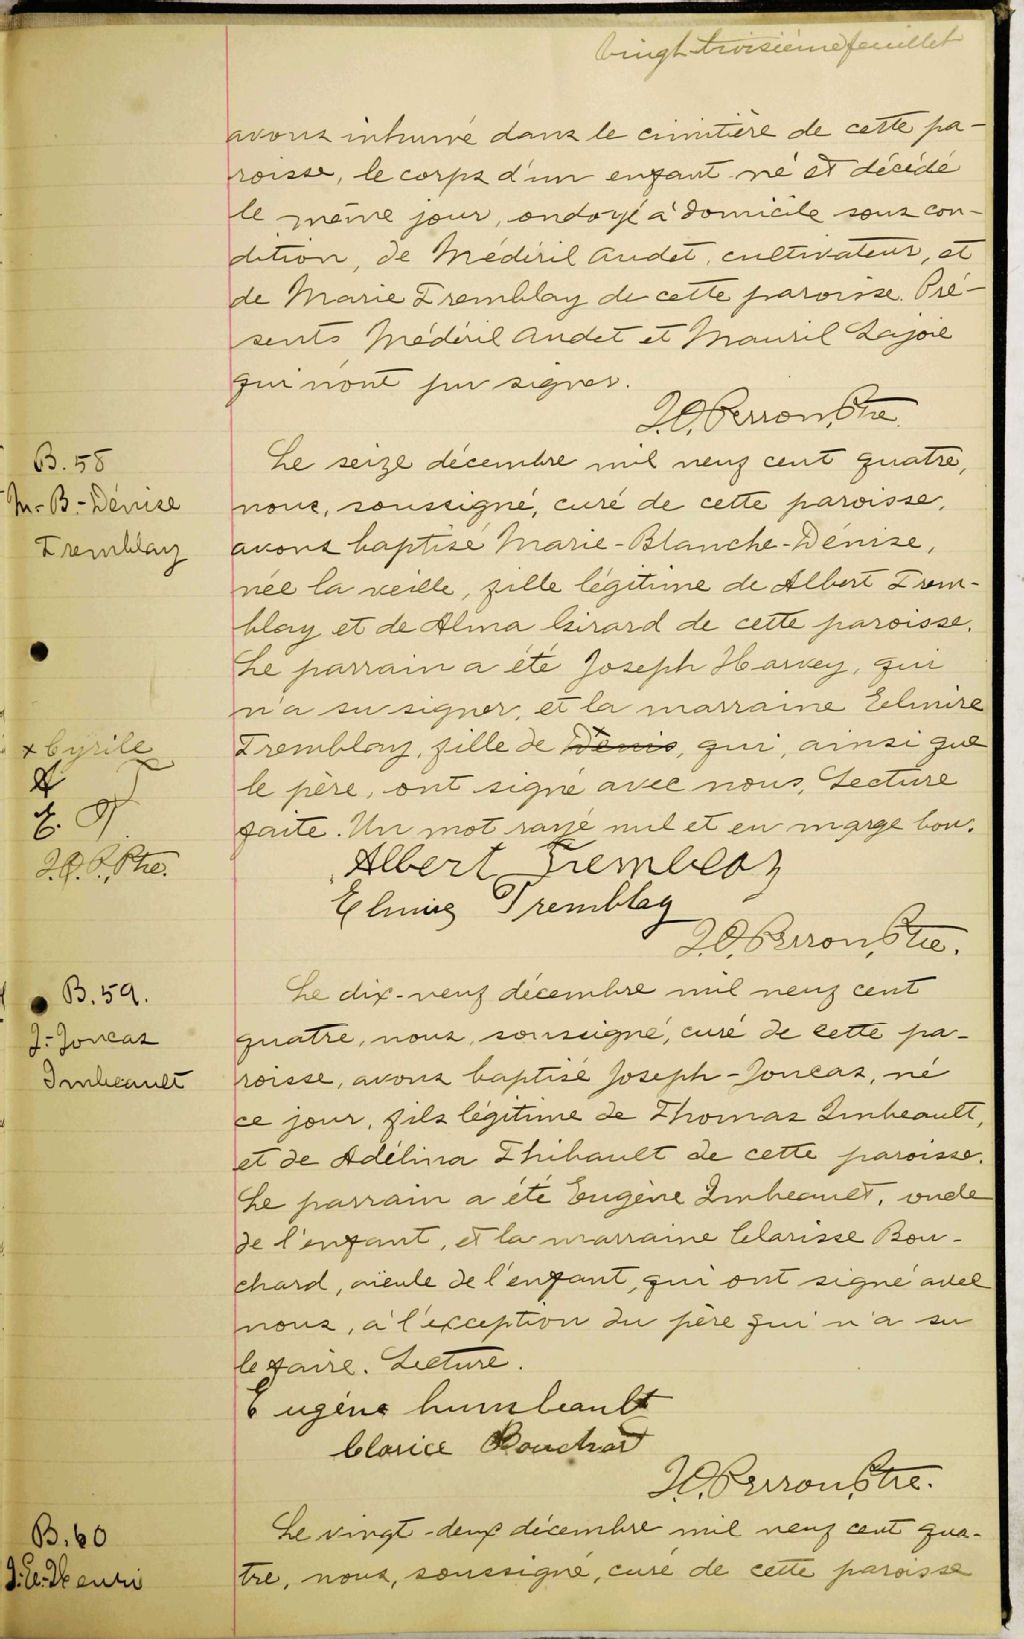 Vingt-troisième feuillet
avons inhumé dans le cimitière de cette pa-
roisse, le corps d'un enfant né et décédé
le même jour, ondoyé à domicile sous con-
dition, de Médéril Audet, cultivateur, et
de Marie Tremblay de cette paroisse. Pré-
sents Médéril Audet et Mauril Lajoie
qui n'ont pu signer.
J.O. Perron, Ptre.
B. 58
M.-B.-Dénise
Tremblay
Le seize décembre mil neuf cent quatre,
nous, soussigné, curé de cette paroisse,
avons baptisé Marie-Blanche-Dénise,
née la veille, fille légitime de Albert Trem-
blay et de Alma Girard de cette paroisse.
Le parrain a été Joseph Harvey, qui
n'a su signer, et la marraine Elmire
Tremblay, fille de Dénis, qui, ainsi que
le père, ont signé avec nous, Lecture
faite. Un mot rayé nul et en marge bon.
x Cyrile
A T
E. T.
J.O.P., Ptre.
Albert Tremblay
Elmire Tremblay
J.O. Perron, Ptre.
B. 59.
J.-Joncas
Imbeault
Le dix-neuf décembre mil neuf cent
quatre, nous, soussigné, curé de cette pa-
roisse, avons baptisé Joseph-Joncas, né
ce jour, fils légitime de Thomas Imbeault,
et de Adélina Thibault de cette paroisse.
Le parrain a été Eugène Imbeault, oncle
de l'enfant, et la marraine Clarisse Bou-
chard, aïeule de l'enfant, qui ont signé avec
nous, à l'exception du père qui n'a su
le faire. Lecture.
Eugène Humbeault
Clarice Bouchard
J.O. Perron, Ptre.
B. 60
J.-E.-Henri
Le vingt-deux décembre mil neuf cent qua-
tre, nous, soussigné, curé de cette paroisse